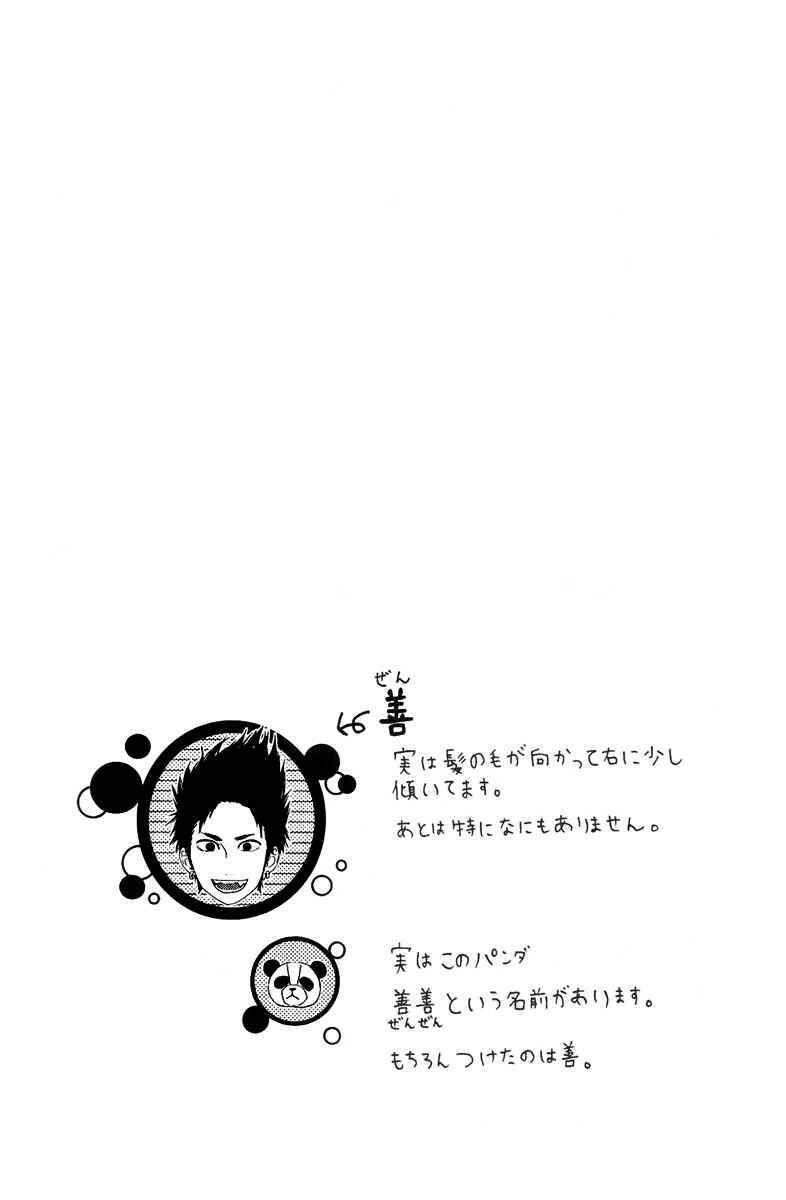 ぜん
善
実は髪の毛が向かって右に少し
傾いてます。
あとは特になにもありません。
実はこのパンダ
善善という名前があります。
ぜんぜん
もちろんつけたのは善。